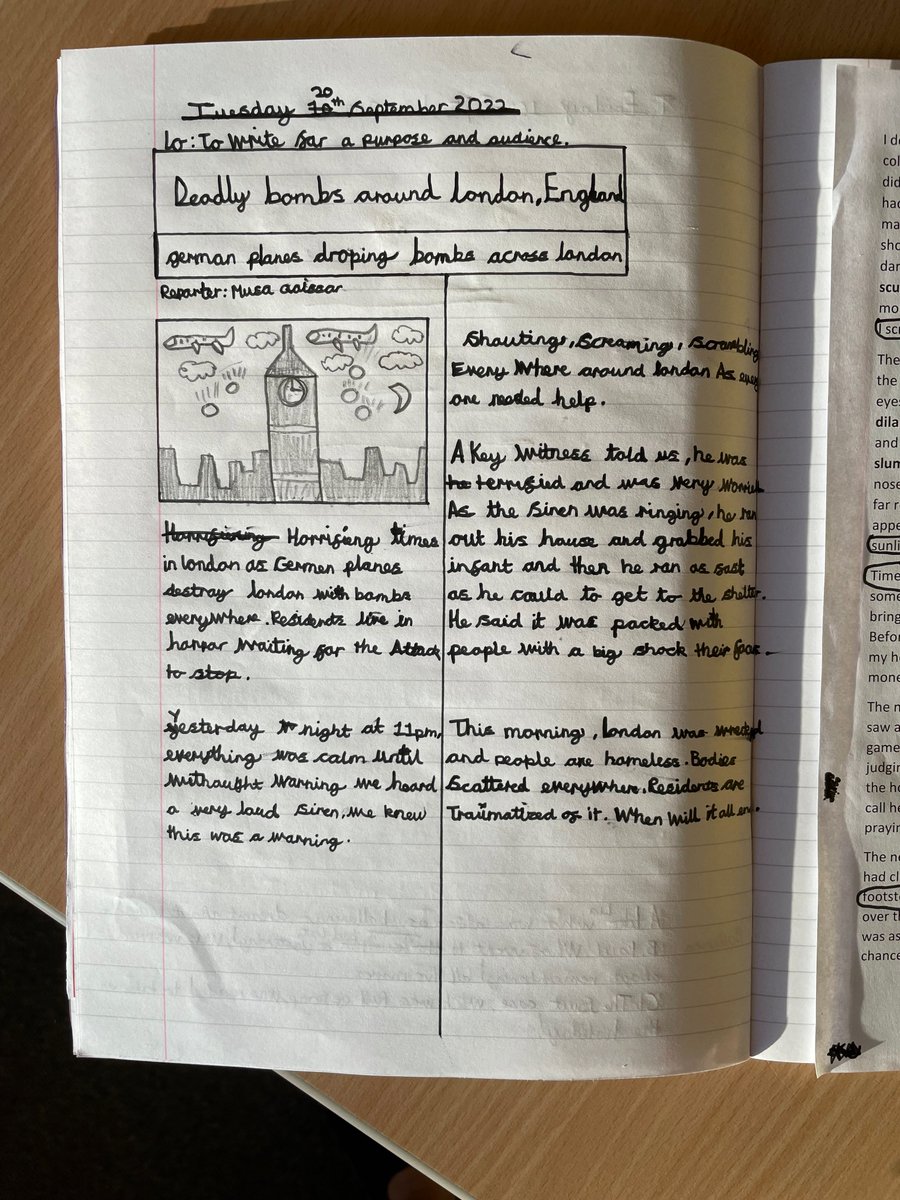 Tuesday 20th September 2022
Lo: To Write for a purpose and audience.
Deadly bombs around London, England
german planes droping bombs across london
Reporter: Musa
Horrifieng times
in london as Germen planes
destray london with bombs
everywhere. Residents live in
horror Waiting for the Attack
to stop.
Yesterday night at 11pm,
everything was calm until
without Warning we heard
a very loud siren, we knew
this was a warning.
Shouting, Screaming, Scrambling
Every Where around london As
one needed help.
A Key Witness told us, he was
terrufied and was very worried
As the siren was ringing, he ran
out his house and grabbed his
infant and then he ran as fast
as he could to get to the shelter.
He said it was packed with
people with a big shock their
This morning, London was
and people are homeless. Bodies
Scattered everywhere. Residents are
Traumatized of it. When Will it all end.
I
col
did
had
ma
sho
dar
scu
mo
I scr
The
the
eyes
dila
and
slum
nose
far r
appe
sunli
Time
some
bring
Befor
my h
mone
The n
saw a
game
judgin
the he
call he
prayin
The ne
had cl
footste
over th
was as
chance